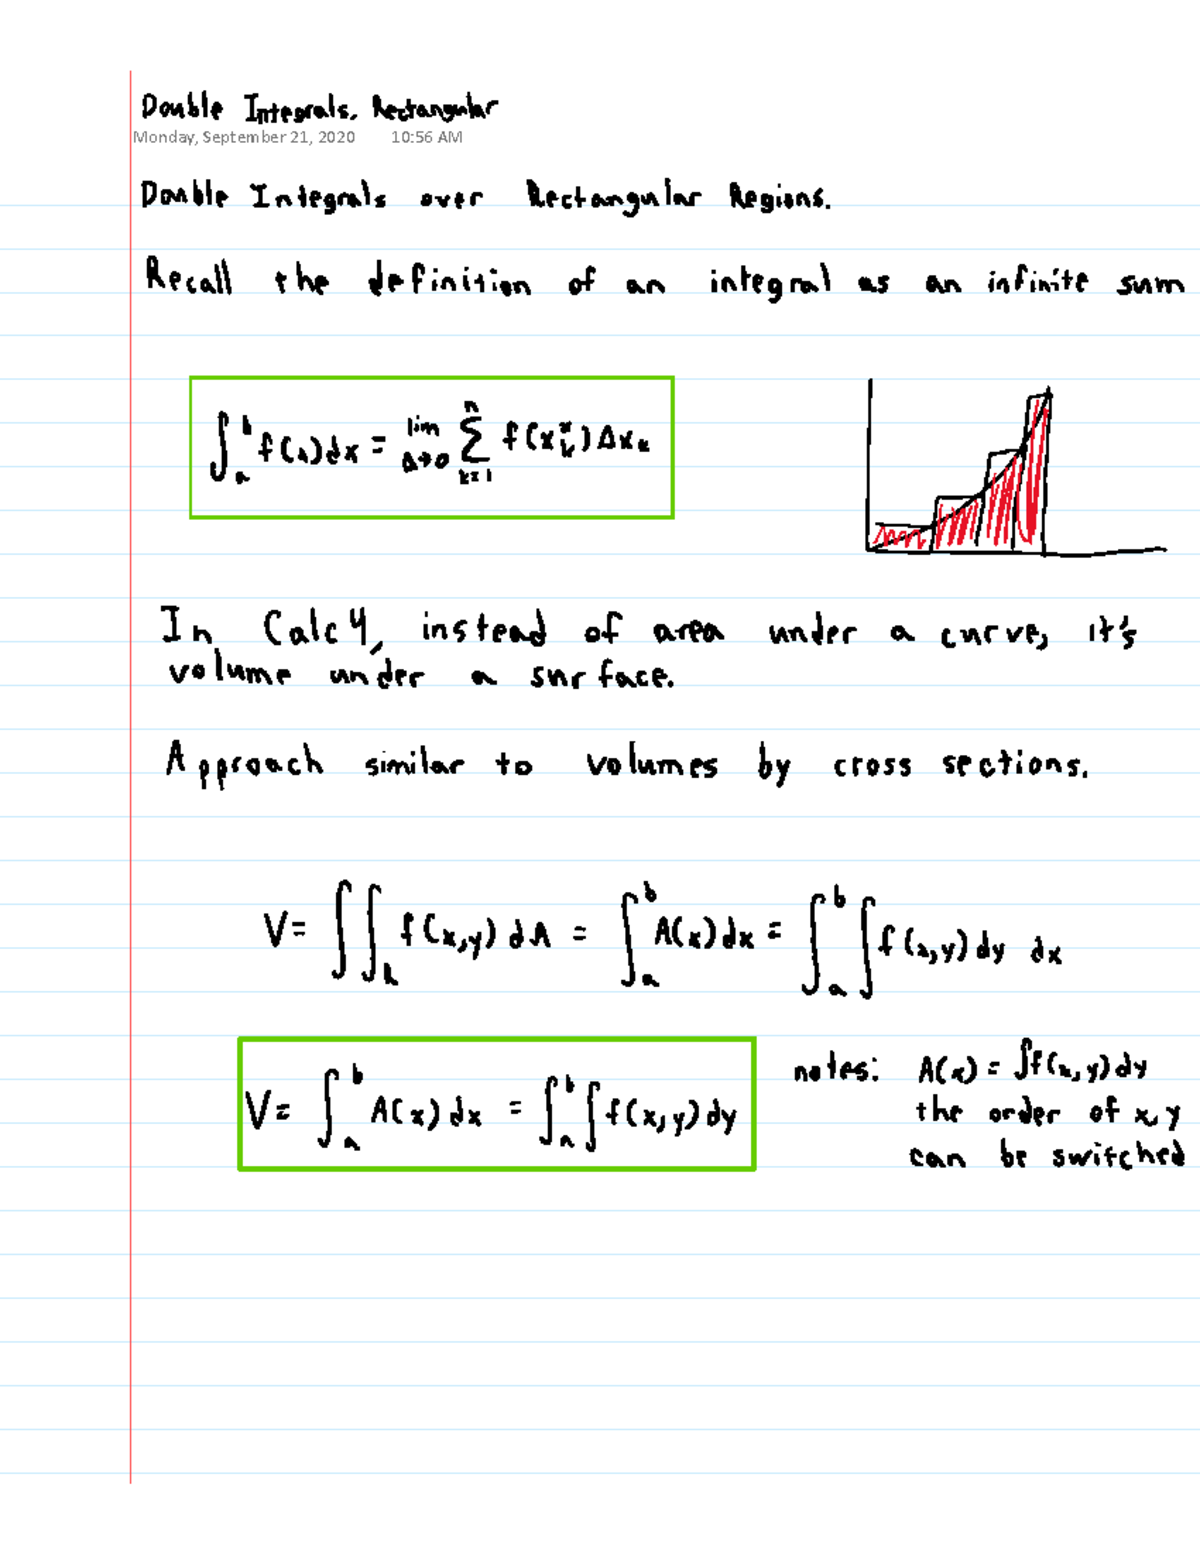 Double Integrals, Rectangular
Monday, September 21, 2020 10:56 AM
Double Integrals over Rectangular Regions.
Recall the definition of an integral as an infinite sum
∫_a^b f(x)dx = lim_{Δ→0} ∑_{k=1}^n f(x_k^*)Δx_k
In Calc 4, instead of area under a curve, it's
volume under a surface.
Approach similar to volumes by cross sections.
V= ∫∫_R f(x,y) dA = ∫_a^b A(x)dx = ∫_a^b ∫f(x,y)dy dx
V= ∫_a^b A(x)dx = ∫_a^b ∫f(x,y)dy
notes: A(x) = ∫f(x,y)dy
the order of x,y
can be switched